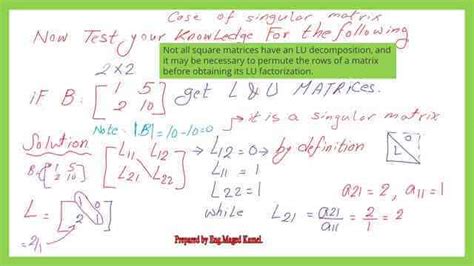 Case of singular matrix
Now Test your Knowledge For the following
Not all square matrices have an LU decomposition, and
it may be necessary to permute the rows of a matrix
before obtaining its LU factorization.
2×2
iF B: [1 5
2 10] get L & U MATRices.
Note: |B| = 10-10=0 → it is a singular matrix
Solution
B: [1 5
2 10]
[L11 L12
L21 L22]
L12 = 0 → by definition
L11 = 1
L22 = 1
0
L
a21 = 2, a11 = 1
while L21 = a21/a11 = 2/1 = 2
L = [1 0
2 1]
= 2/1
Prepared by Eng.Maged Kamel.